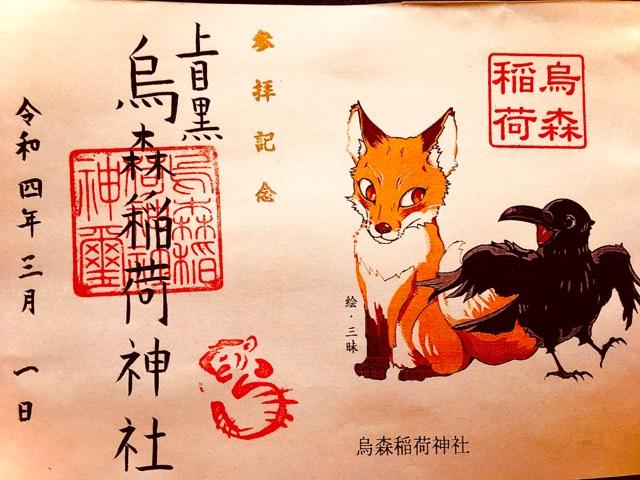 参拝記念
上目黒
烏森稲荷神社
令和四年三月 一日
烏森
稲荷
烏森稲
荷神社
神璽
絵・三昧
烏森稲荷神社